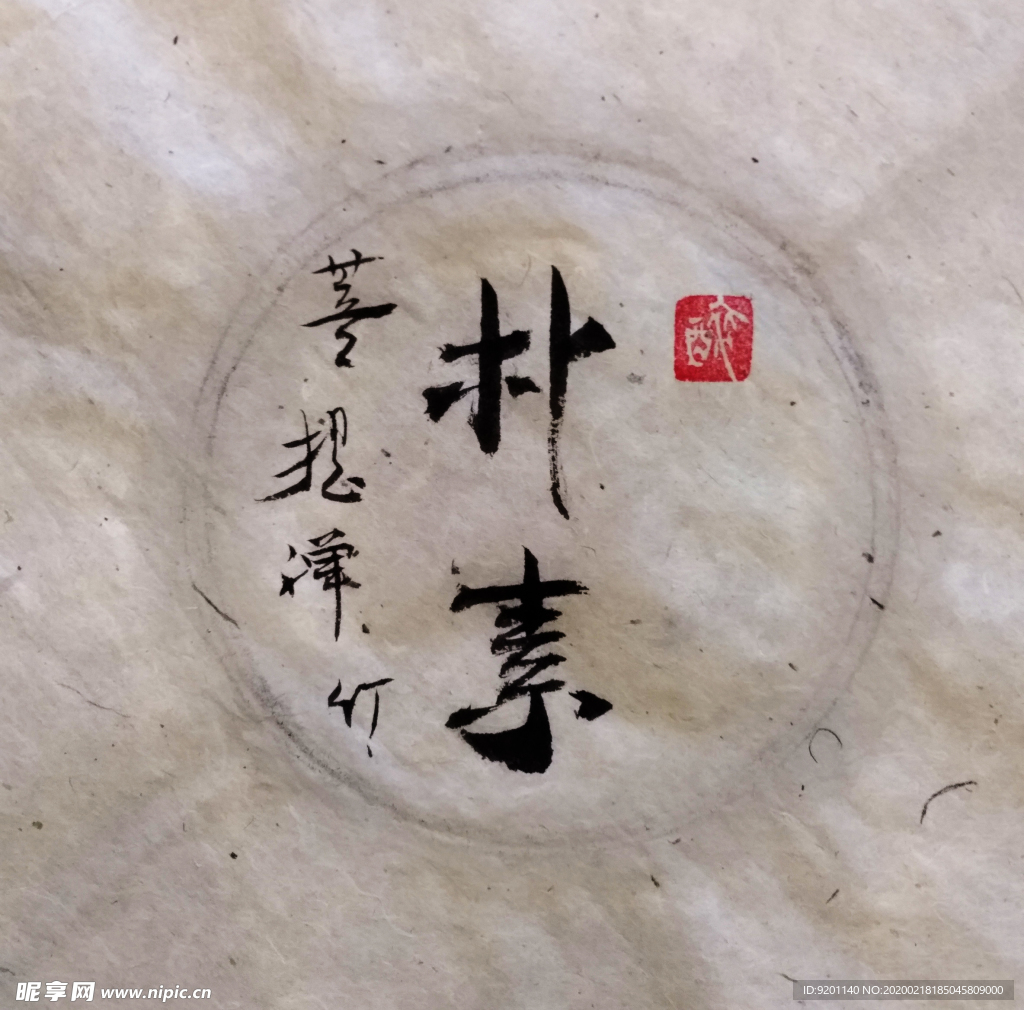 朴素
菩提泽竹
醉
昵享网 www.nipic.cn
ID:9201140 NO:20200218185045809000